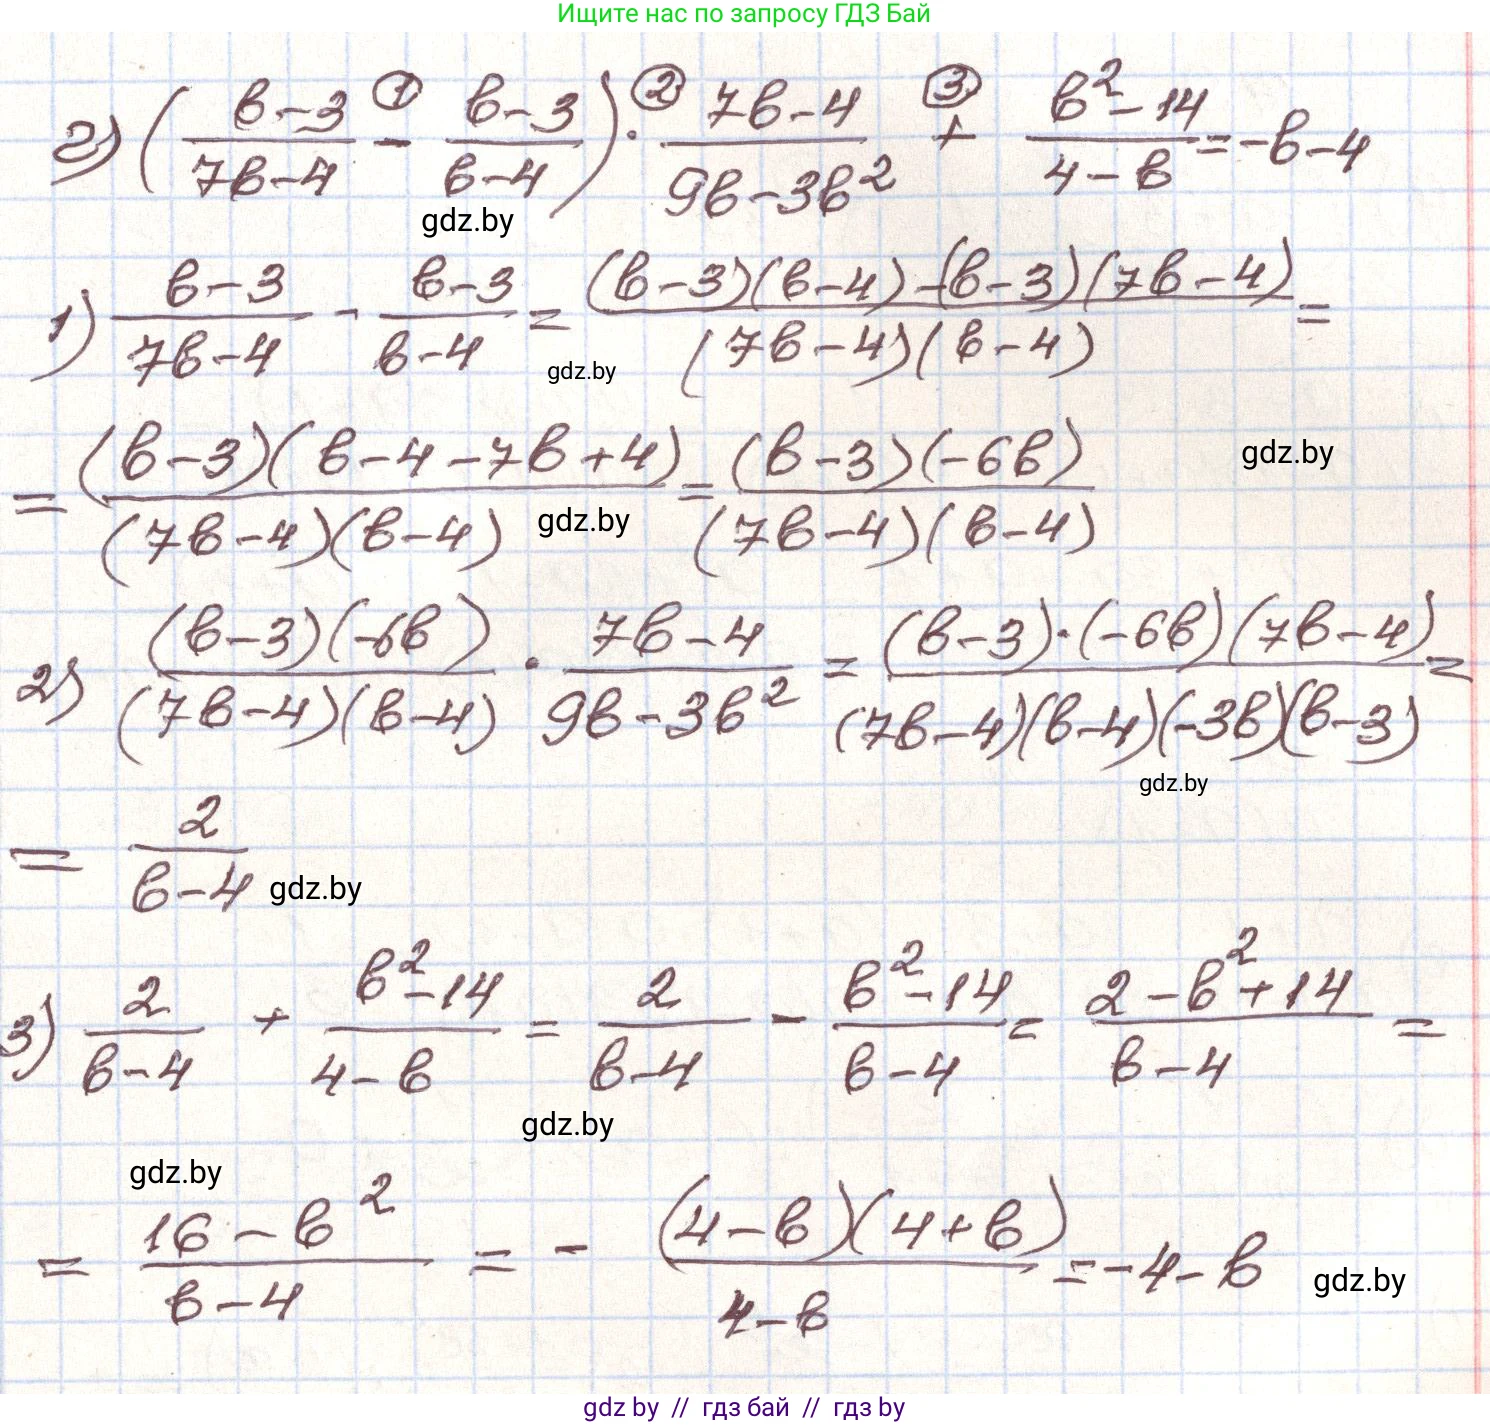 Ищите нас по запросу ГДЗ Бай
г) ( (в-3)/(7в-4) - (в-3)/(в-4) ) · (7в-4)/(9в-3в²) + (в²-14)/(4-в) = -в-4
① ② ③
gdz.by
1) (в-3)/(7в-4) - (в-3)/(в-4) = ((в-3)(в-4)-(в-3)(7в-4))/((7в-4)(в-4)) =
gdz.by
= ((в-3)(в-4-7в+4))/((7в-4)(в-4)) = ((в-3)(-6в))/((7в-4)(в-4))
gdz.by
gdz.by
2) ((в-3)(-6в))/((7в-4)(в-4)) · (7в-4)/(9в-3в²) = ((в-3)·(-6в)(7в-4))/((7в-4)(в-4)(-3в)(в-3)) =
gdz.by
= 2/(в-4)
gdz.by
3) 2/(в-4) + (в²-14)/(4-в) = 2/(в-4) - (в²-14)/(в-4) = (2-в²+14)/(в-4) =
gdz.by
gdz.by
= (16-в²)/(в-4) = - ((4-в)(4+в))/(4-в) = -4-в
gdz.by
gdz by // гдз бай // гдз by